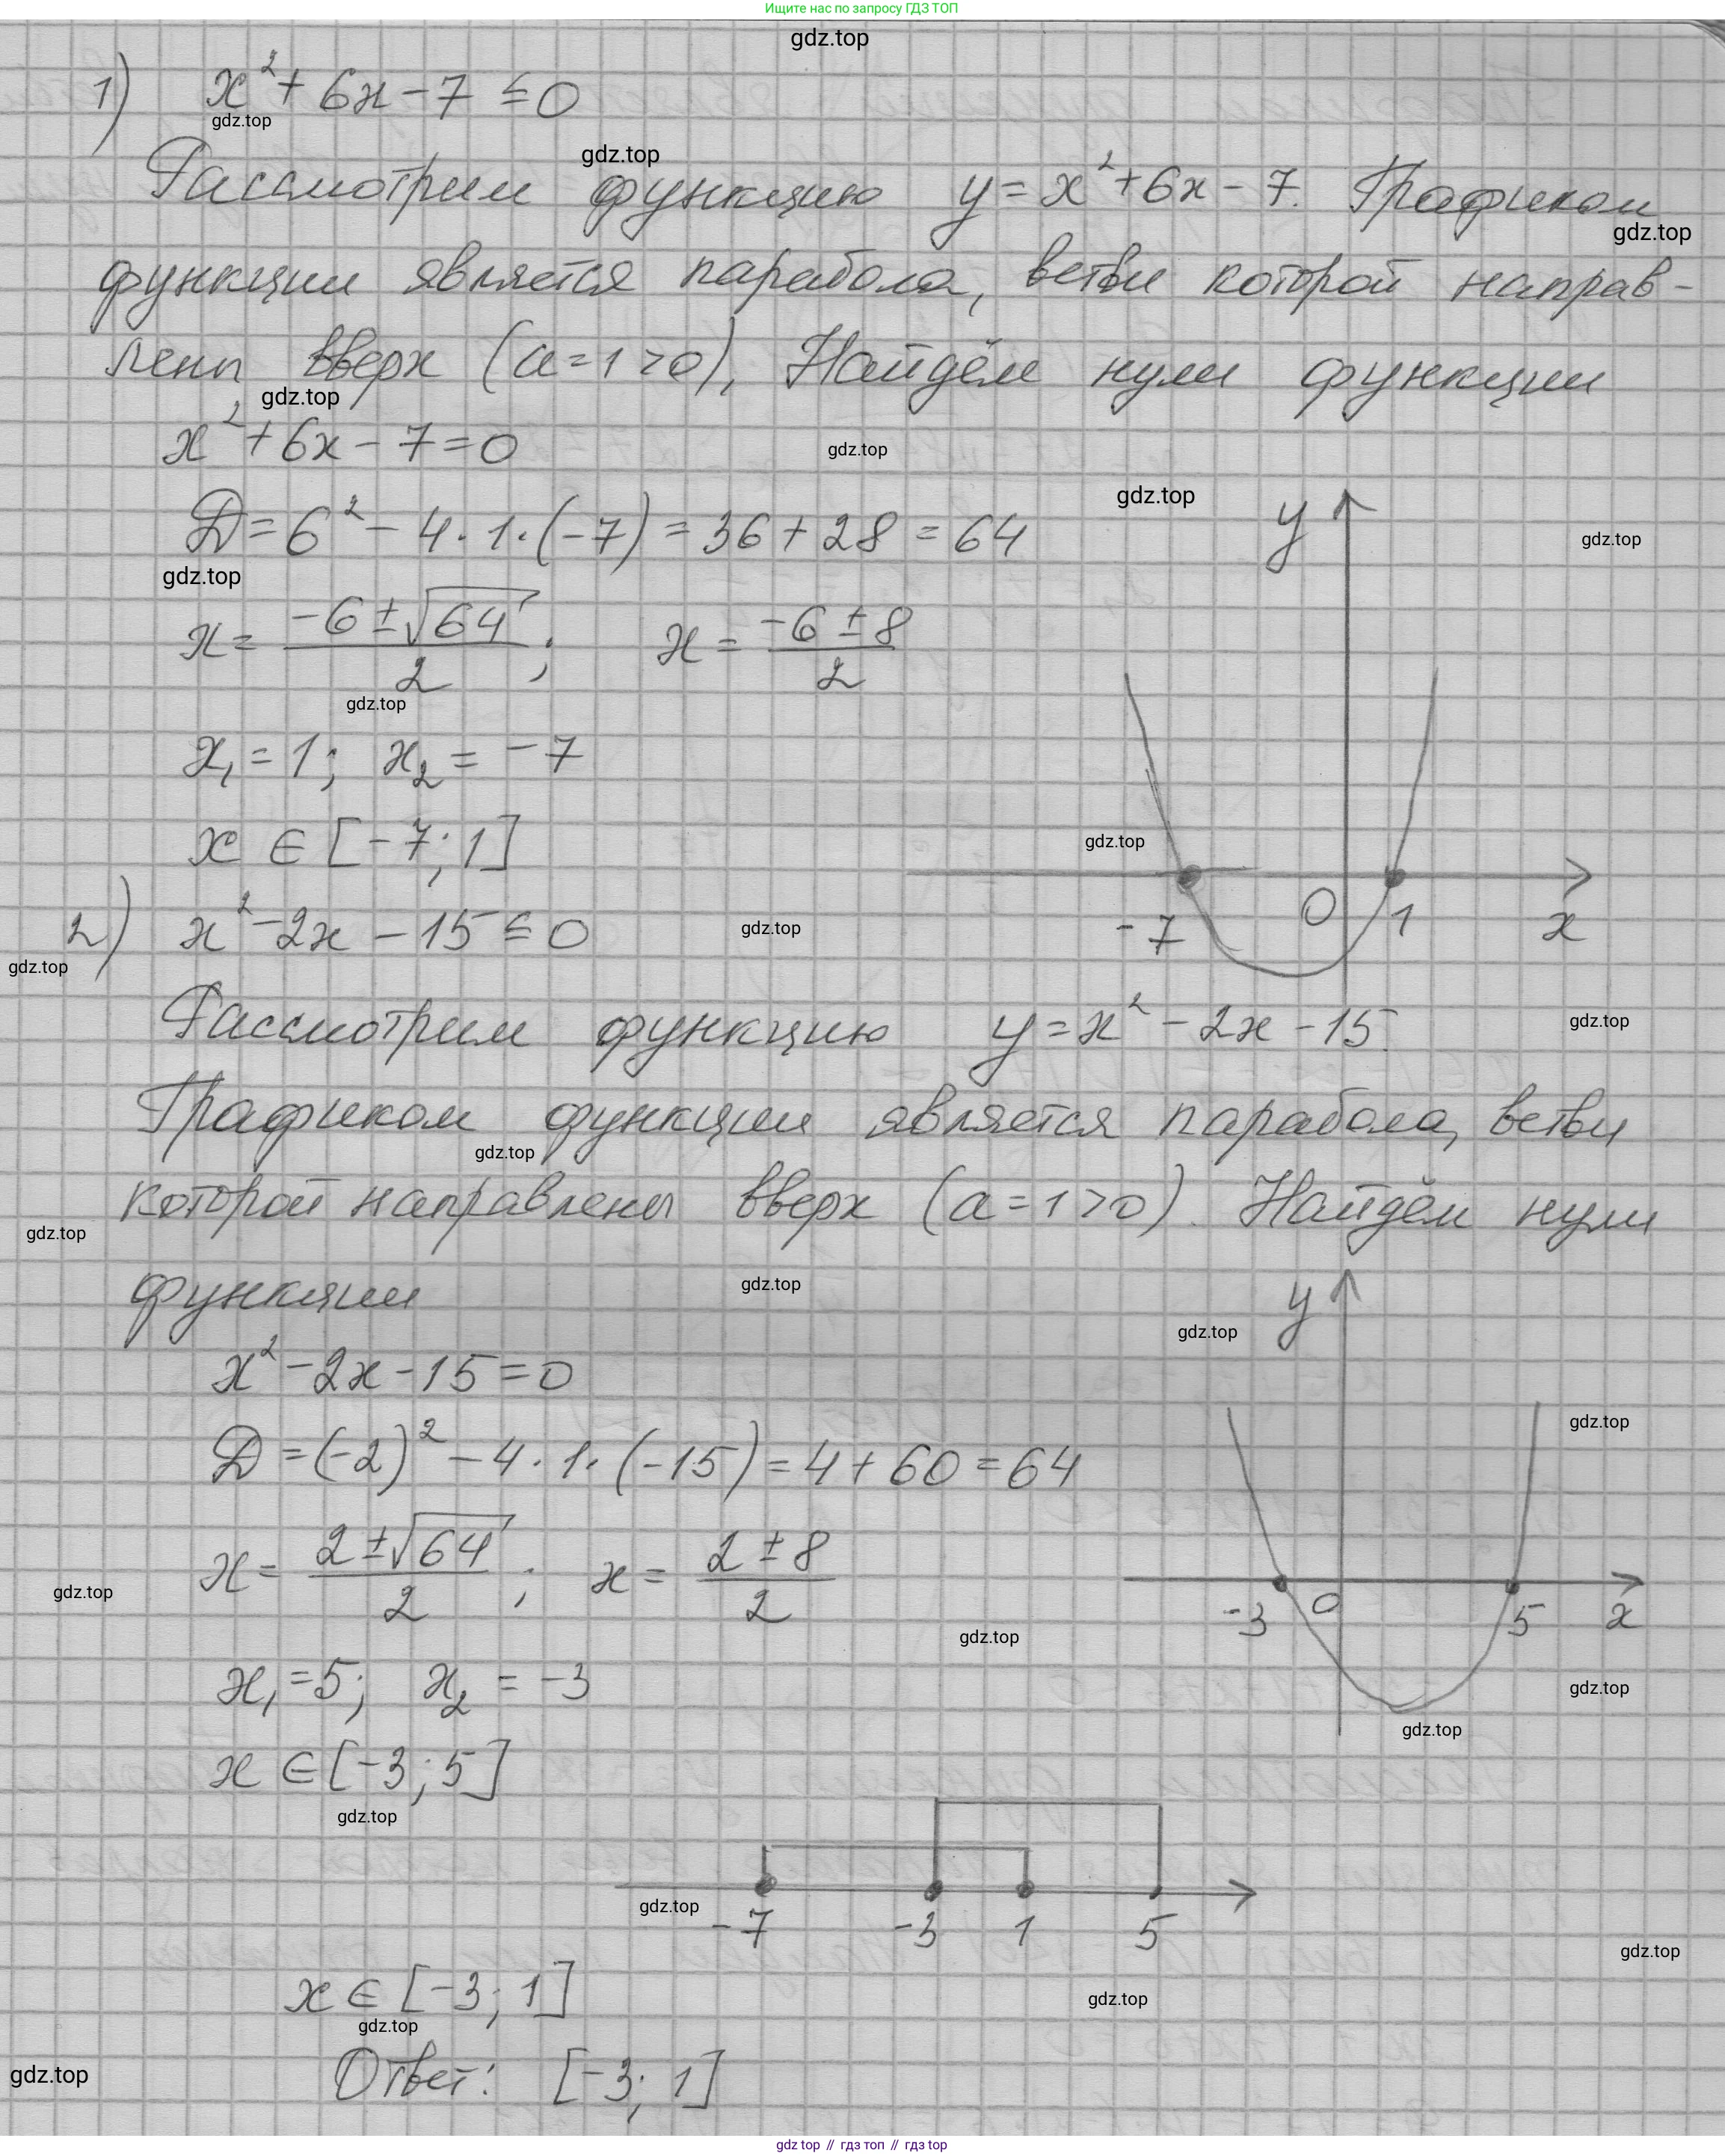 Ищите нас по запросу ГДЗ ТОП
gdz.top
1) x² + 6x - 7 ≤ 0
gdz.top
gdz.top
Рассмотрим функцию y = x² + 6x - 7. Графиком
gdz.top
функции является парабола, ветви которой направ-
лены вверх (a = 1 > 0), Найдём нули функции
gdz.top
x² + 6x - 7 = 0
gdz.top
gdz.top
y
D = 6² - 4 · 1 · (-7) = 36 + 28 = 64
gdz.top
gdz.top
x = (-6 ± √64) / 2 ; x = (-6 ± 8) / 2
gdz.top
x₁ = 1; x₂ = -7
gdz.top
x ∈ [-7; 1]
-7 0 1 x
2) x² - 2x - 15 ≤ 0
gdz.top
gdz.top
Рассмотрим функцию y = x² - 2x - 15.
gdz.top
Графиком функции является парабола, ветви
gdz.top
которой направлены вверх (a = 1 > 0). Найдём нули
gdz.top
функции
gdz.top
y
gdz.top
x² - 2x - 15 = 0
gdz.top
D = (-2)² - 4 · 1 · (-15) = 4 + 60 = 64
x = (2 ± √64) / 2 ; x = (2 ± 8) / 2
gdz.top
-3 0 5 x
gdz.top
x₁ = 5; x₂ = -3
gdz.top
gdz.top
x ∈ [-3; 5]
gdz.top
gdz.top
-7 -3 1 5
gdz.top
x ∈ [-3; 1]
gdz.top
gdz.top
gdz.top
Ответ: [-3; 1]
gdz.top // гдз топ // гдз top